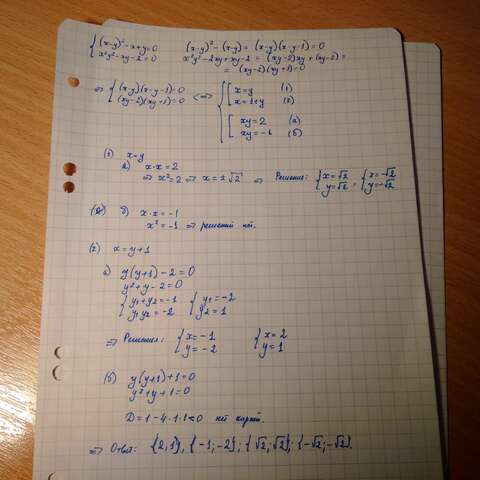 {(x-y)²-x+y=0      (x-y)²-(x-y) = (x-y)(x-y-1)=0
x²y²-xy-2=0      x²y²-2xy+xy-2 = (xy-2)xy+(xy-2) =
= (xy-2)(xy+1)=0
⇒ {(x-y)(x-y-1)=0 ⇔ {[x=y (1)
(xy-2)(xy+1)=0      x=1+y (2)
[xy=2 (а)
xy=-1 (б)
(1) x=y
а) x·x=2
⇒ x²=2 ⇒ x=±√2 ⇒ Решения: {x=√2 y=√2, {x=-√2 y=-√2
б) x·x=-1
x²=-1 ⇒ решений нет.
(2) x=y+1
а) y(y+1)-2=0
y²+y-2=0
{y₁+y₂=-1      {y₁=-2
y₁y₂=-2      y₂=1
⇒ Решения: {x=-1      {x=2
y=-2      y=1
(б) y(y+1)+1=0
y²+y+1=0
D=1-4·1·1<0 нет корней.
⇒ Ответ: {2;1}, {-1;-2}; {√2;√2}; {-√2;-√2}.